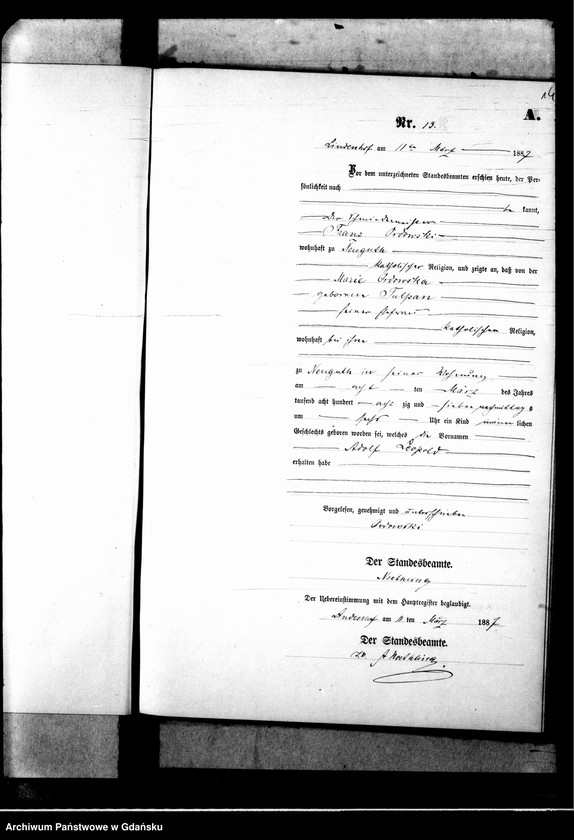 A.
Nr. 13.
Lindenhof am 11ten März 1887
Vor dem unterzeichneten Standesbeamten erschien heute, der Per-
sönlichkeit nach
be kannt,
der Schmiedemeister
Franz Ordowski
wohnhaft zu Neuguth
katholischer Religion, und zeigte an, daß von der
Marie Ordowska
geborene Tulpan
seiner Ehefrau
katholischen Religion,
wohnhaft bei ihm
zu Neuguth in seiner Wohnung
am acht ten März des Jahres
tausend acht hundert acht zig und sieben nachmittags
um sechs Uhr ein Kind männlichen
Geschlechts geboren worden sei, welches die Vornamen
Adolf Leopold
erhalten habe
Vorgelesen, genehmigt und unterschrieben
Ordowski
Der Standesbeamte.
Die Uebereinstimmung mit dem Hauptregister beglaubigt.
Lindenhof am 11 ten März 1887
Der Standesbeamte.
Archiwum Państwowe w Gdańsku